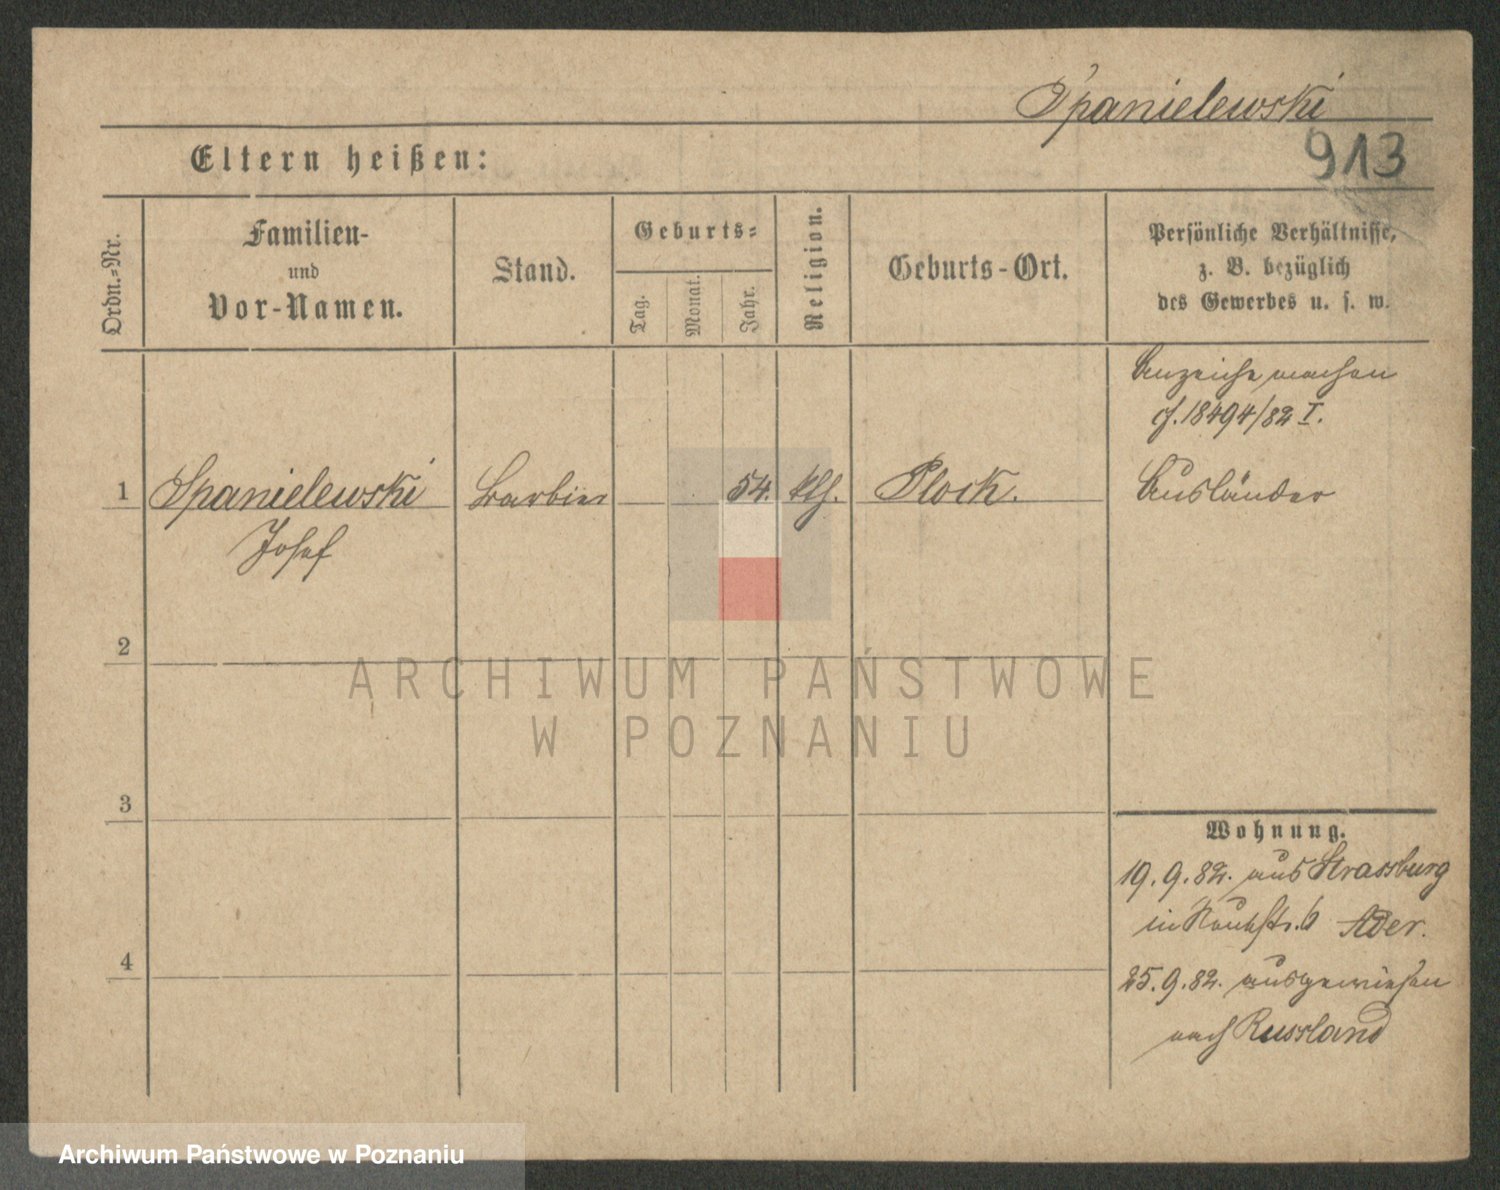 Spanielewski
913
Eltern heißen:
Ordn.=Nr.
Familien-
und
Vor-Namen.
Stand.
Geburts=
Tag.
Monat.
Jahr.
Religion.
Geburts-Ort.
Persönliche Verhältnisse,
z. B. bezüglich
des Gewerbes u. s. w.
machen
cf. 18494/82 I.
1
Spanielewski
Josef
Barbier
54.
kth.
Plock.
Ausländer
2
3
4
Wohnung.
19. 9. 82. aus Strassburg
in
25. 9. 82. ausgewiesen
nach Russland
ARCHIWUM PAŃSTWOWE
W POZNANIU
Archiwum Państwowe w Poznaniu